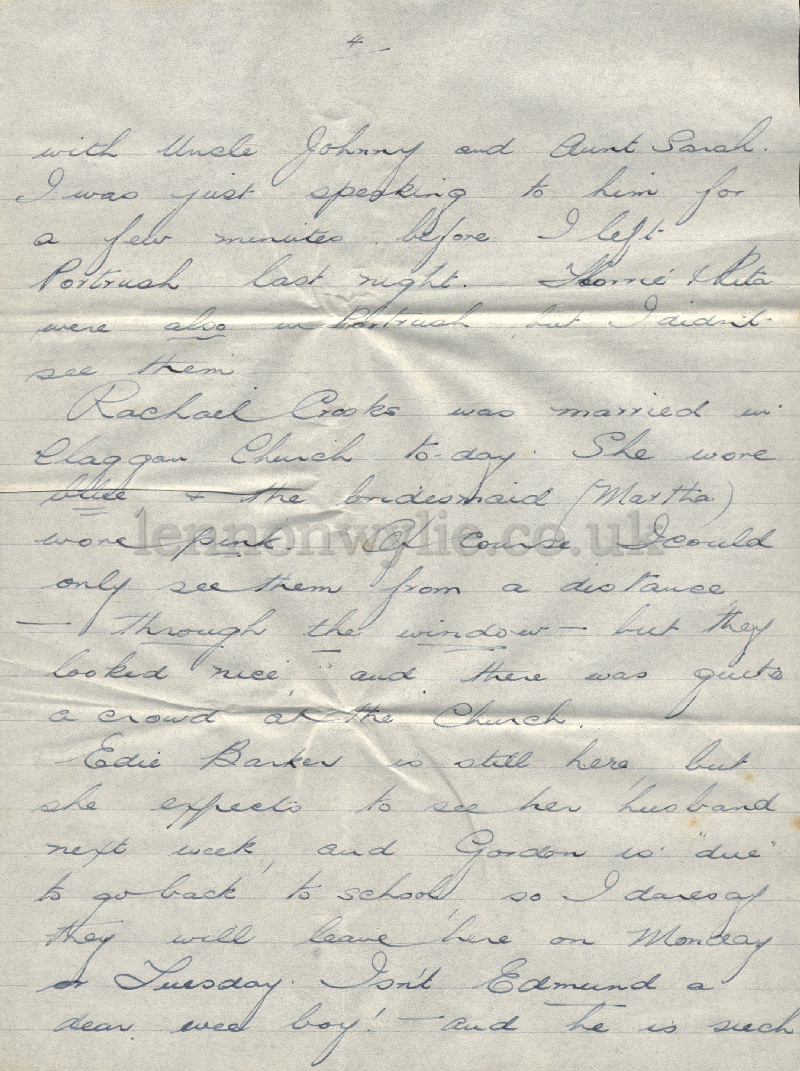 4
with Uncle Johnny and Aunt Sarah.
I was just speaking to him for
a few minutes before I left
Portrush last night. & Rita
were also in Portrush, but I didn't
see them
Rachael Crooks was married in
Claggan Church to-day. She wore
blue, & the bridesmaid (Martha)
wore pink. Of course I could
only see them from a distance,
— through the window — but they
looked "nice," and there was quite
a crowd at the Church.
Edie Barker is still here, but
she expects to see her husband
next week, and Gordon is "due"
to go back to school, so I daresay
they will leave here on Monday
or Tuesday. Isn't Edmund a
dear wee boy! — and he is such
lennonwylie.co.uk